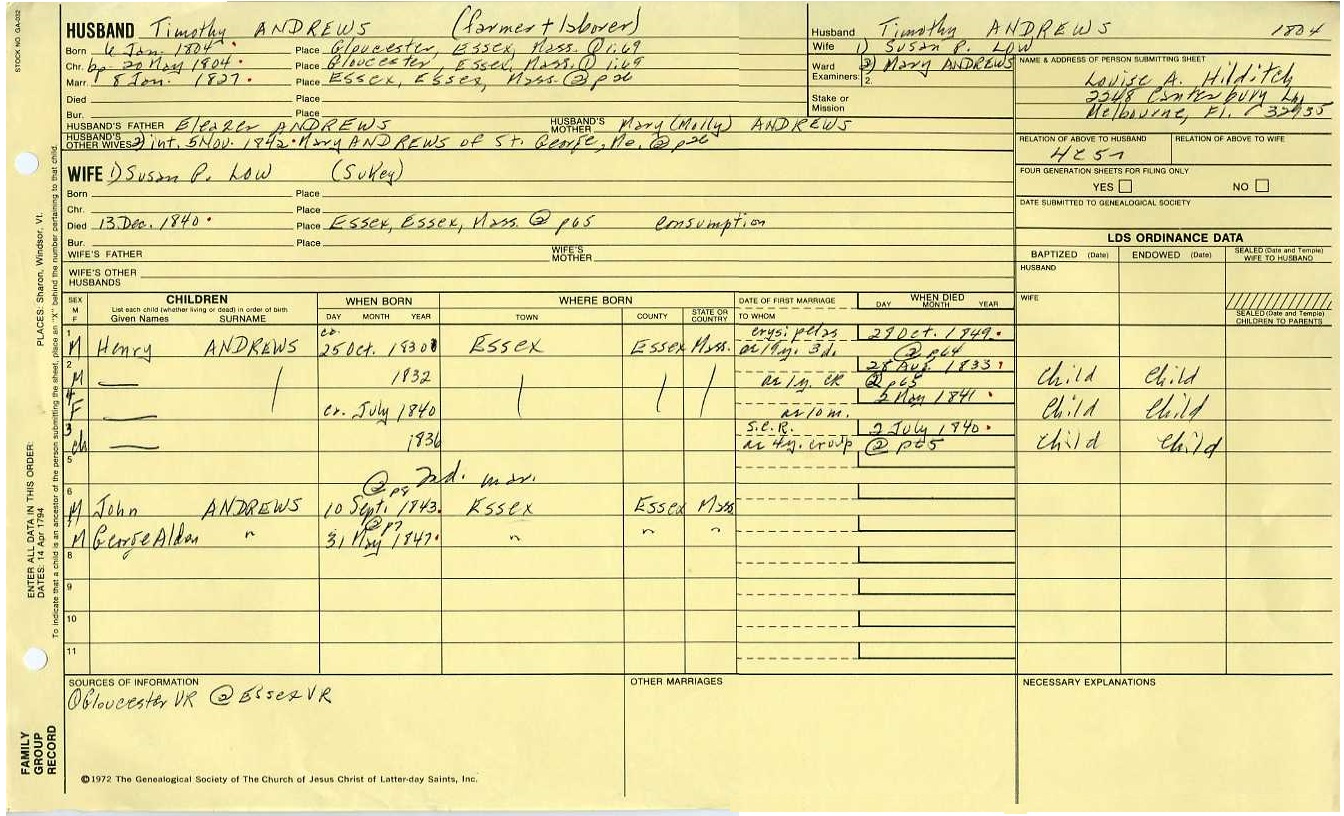 STOCK NO. GA-032
HUSBAND Timothy ANDREWS (farmer + laborer)
Born 6 Jan. 1804 Place Gloucester, Essex, Mass. ① 1:69
Chr. bp 20 May 1804 Place Gloucester, Essex, Mass. ① 1:69
Marr. 1) 8 Jan. 1827 Place Essex, Essex, Mass. ② p26
Died Place
Bur. Place
HUSBAND'S FATHER Eleazer ANDREWS HUSBAND'S MOTHER Mary (Molly) ANDREWS
HUSBAND'S OTHER WIVES 2) int. 5 Nov. 1842 Mary ANDREWS of St. George, Me. ② p26
Husband Timothy ANDREWS 1804
Wife 1) Susan P. LOW
2) Mary ANDREWS
Ward Examiners: 2.
Stake or Mission
NAME & ADDRESS OF PERSON SUBMITTING SHEET
Louise A. Hilditch
2248 Canterbury Ln
Melbourne, Fl. 32935
RELATION OF ABOVE TO HUSBAND RELATION OF ABOVE TO WIFE
FOUR GENERATION SHEETS FOR FILING ONLY
YES NO
DATE SUBMITTED TO GENEALOGICAL SOCIETY
WIFE 1) Susan P. LOW (Sukey)
Born Place
Chr. Place
Died 13 Dec. 1840 Place Essex, Essex, Mass. ② p65 consumption
Bur. Place
WIFE'S FATHER WIFE'S MOTHER
WIFE'S OTHER HUSBANDS
LDS ORDINANCE DATA
BAPTIZED (Date) ENDOWED (Date) SEALED (Date and Temple) WIFE TO HUSBAND
HUSBAND
WIFE
SEALED (Date and Temple) CHILDREN TO PARENTS
SEX M F CHILDREN WHEN BORN WHERE BORN DATE OF FIRST MARRIAGE WHEN DIED
List each child (whether living or dead) in order of birth
Given Names SURNAME DAY MONTH YEAR TOWN COUNTY STATE OR COUNTRY TO WHOM DAY MONTH YEAR
1 M Henry ANDREWS ca. 25 Oct. 1830 Essex Essex Mass. erysipelas 29 Oct. 1849
ae 19y. 3d. ② p64
2 M 1832 ae 1y. CR 28 Aug. 1833 ② p65 Child Child
4 F cr. July 1840 ae 10 m. 2 May 1841 Child Child
3 ch 1836 S.C.R. 2 July 1840
ae 4y. croup ② p65 Child Child
5
② p9 2nd. mar.
6 M John ANDREWS 10 Sept. 1843 Essex Essex Mass
② p7
7 M George Alden " 31 May 1847 " " "
8
9
10
11
SOURCES OF INFORMATION
① Gloucester VR ② Essex VR
OTHER MARRIAGES
NECESSARY EXPLANATIONS
©1972 The Genealogical Society of The Church of Jesus Christ of Latter-day Saints, Inc.
FAMILY GROUP RECORD
ENTER ALL DATA IN THIS ORDER:
DATES: 14 Apr 1794 PLACES: Sharon, Windsor, Vt.
To indicate that a child is an ancestor of the person submitting the sheet, place an "X" behind the number pertaining to that child.